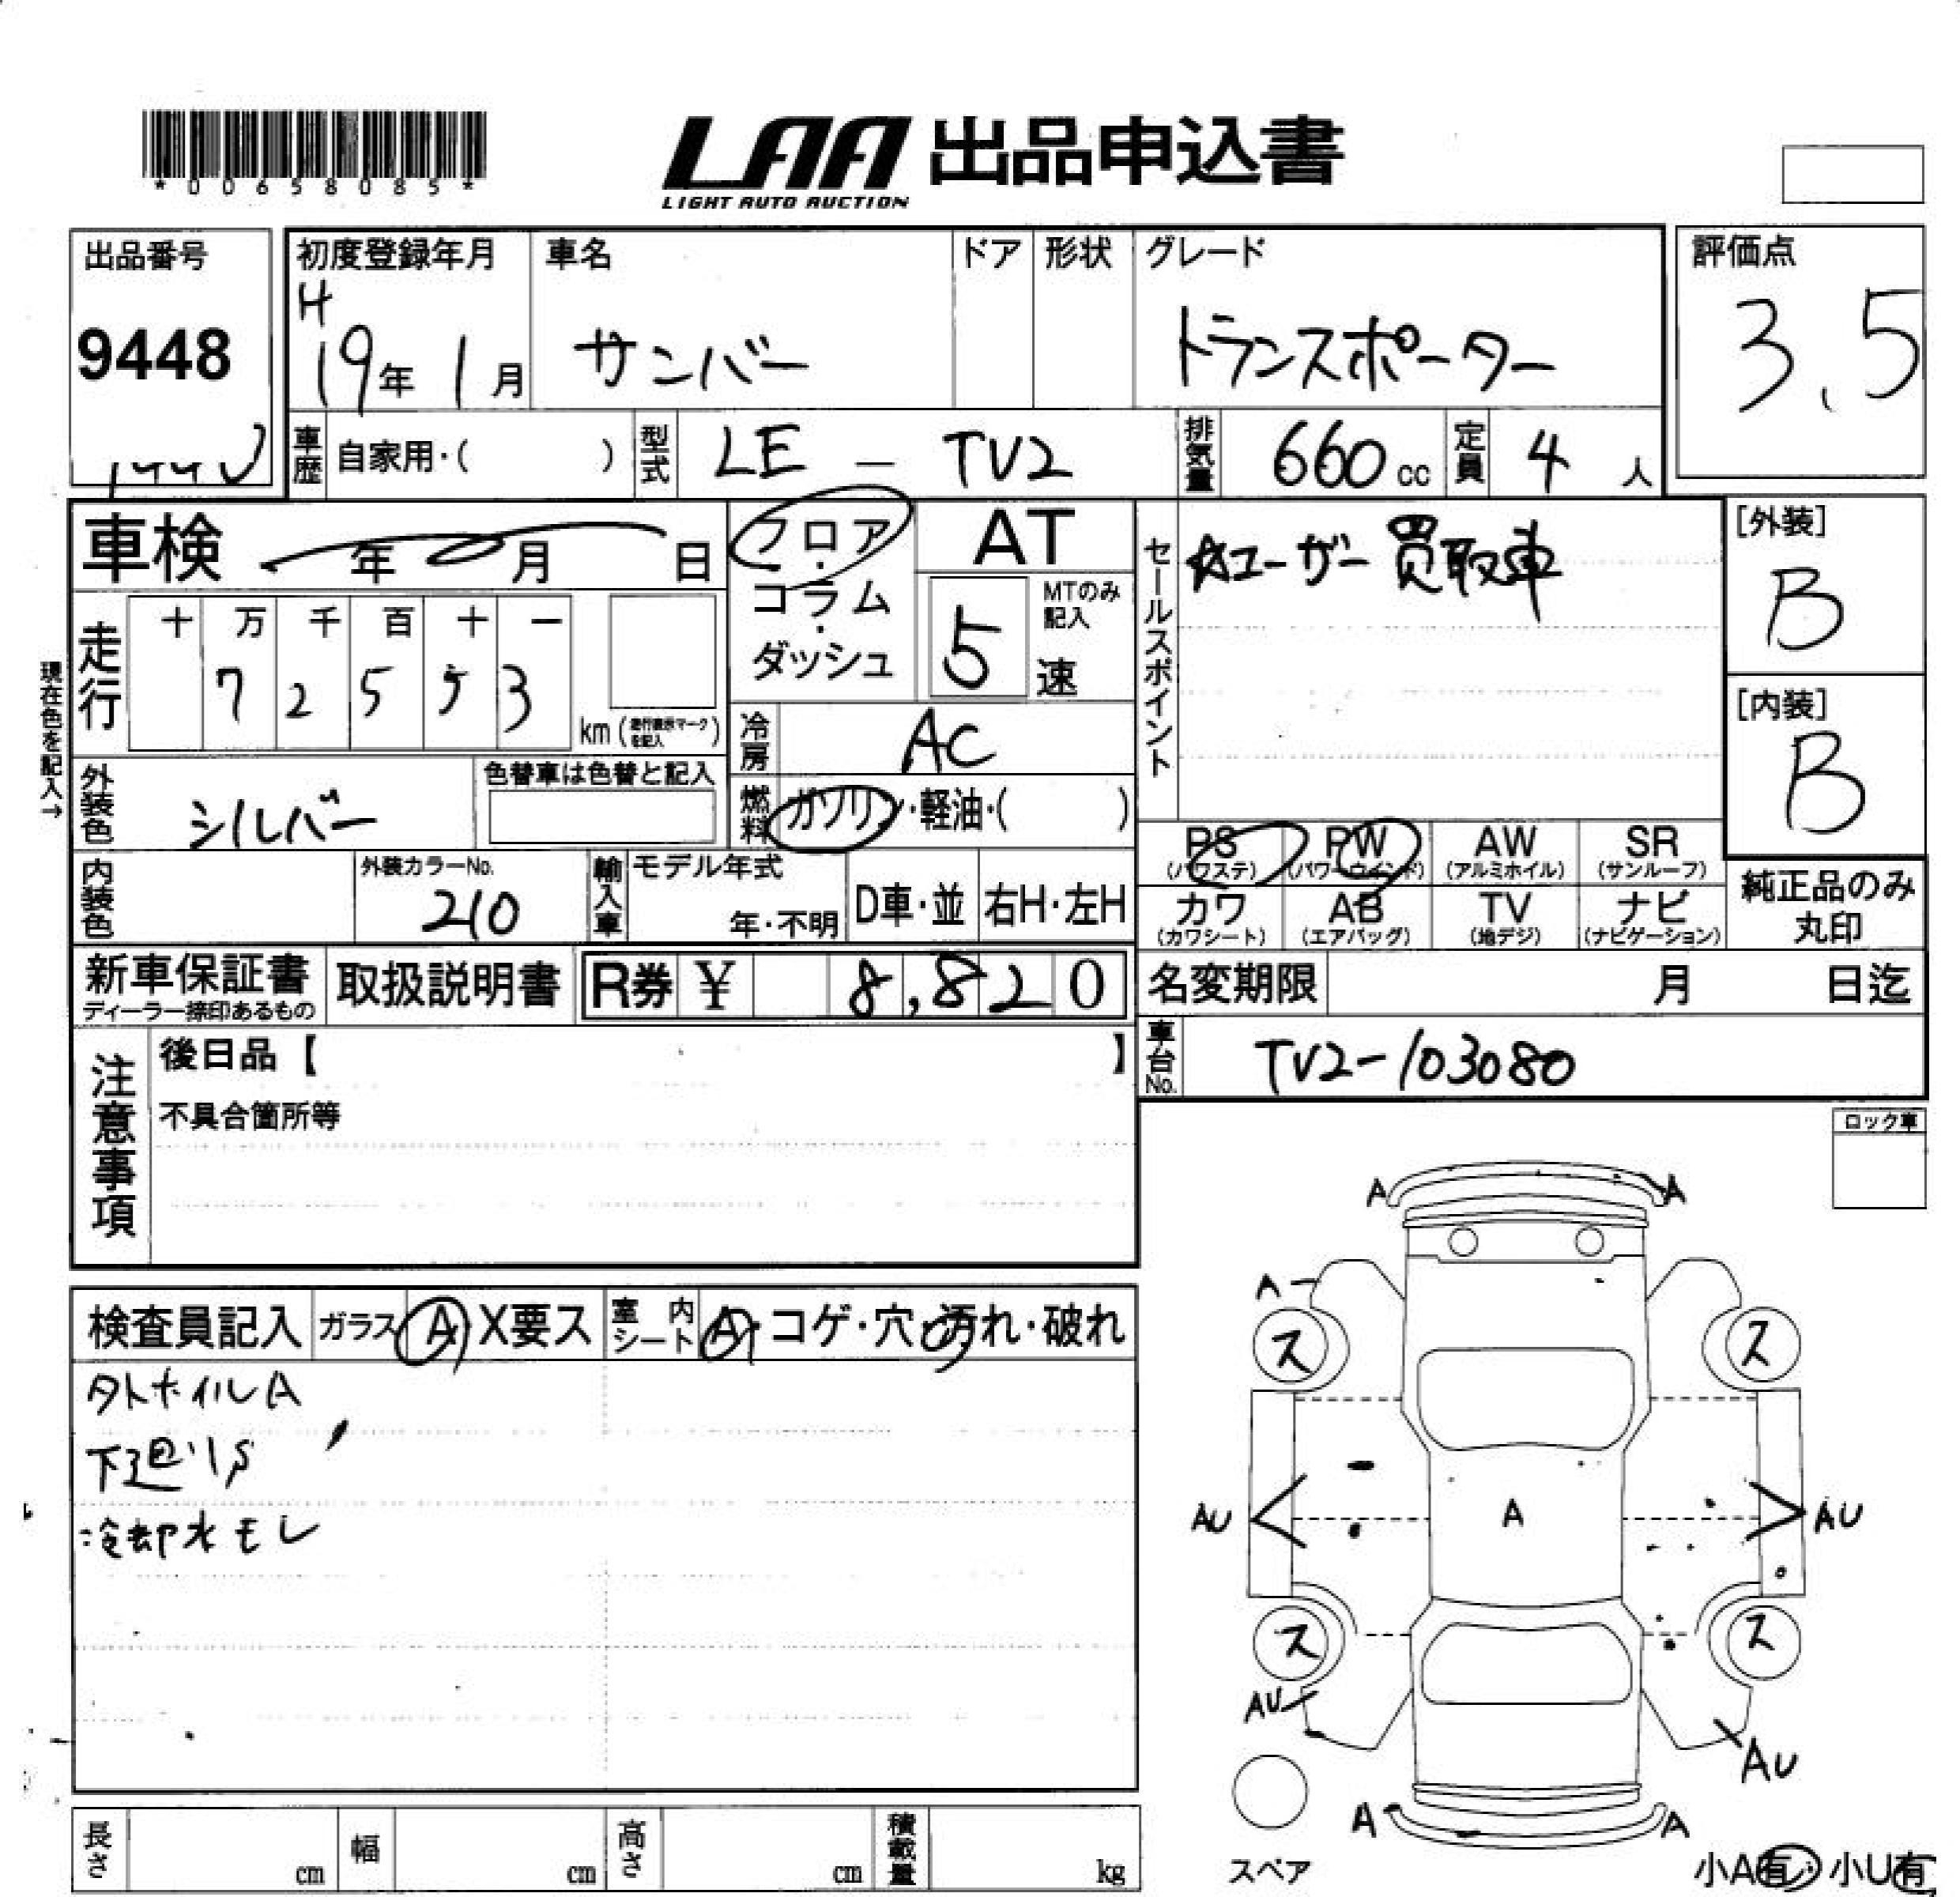 *00658085*
LAA 出品申込書
LIGHT AUTO AUCTION
出品番号
9448
初度登録年月
H
19年 1月
車名
サンバー
ドア
形状
グレード
トランスポーター
評価点
3.5
車歴 自家用・( )
型式 LE - TV2
排気量 660 cc
定員 4 人
車検 年 月 日
フロア
・
コラム
・
ダッシュ
AT
5 速
MTのみ
記入
セールスポイント
Aユーザー 買取車
[外装]
B
[内装]
B
現在色を記入→
走行
十 万 千 百 十 一
7 2 5 5 3
km (走行表示マークを記入)
冷房 AC
外装色 シルバー
色替車は色替と記入
燃料 ガソリン・軽油・( )
PS (パワステ)
PW (パワーウインド)
AW (アルミホイル)
SR (サンルーフ)
内装色
外装カラーNo.
210
輸入車
モデル年式
年・不明
D車・並
右H・左H
カワ (カワシート)
AB (エアバッグ)
TV (地デジ)
ナビ (ナビゲーション)
純正品のみ
丸印
新車保証書
ディーラー捺印あるもの
取扱説明書
R券 ¥ 8,820
名変期限 月 日迄
車台No. TV2-103080
注意事項
後日品【 】
不具合箇所等
ロック車
検査員記入
ガラス A X要ス
室内シート A・コゲ・穴・汚れ・破れ
外ホイルA
下廻りS
冷却水モレ
A A
A
ス ス
AU A AU
ス ス
AU
AU
A A
スペア
小A有・小U有
長さ cm
幅 cm
高さ cm
積載量 kg